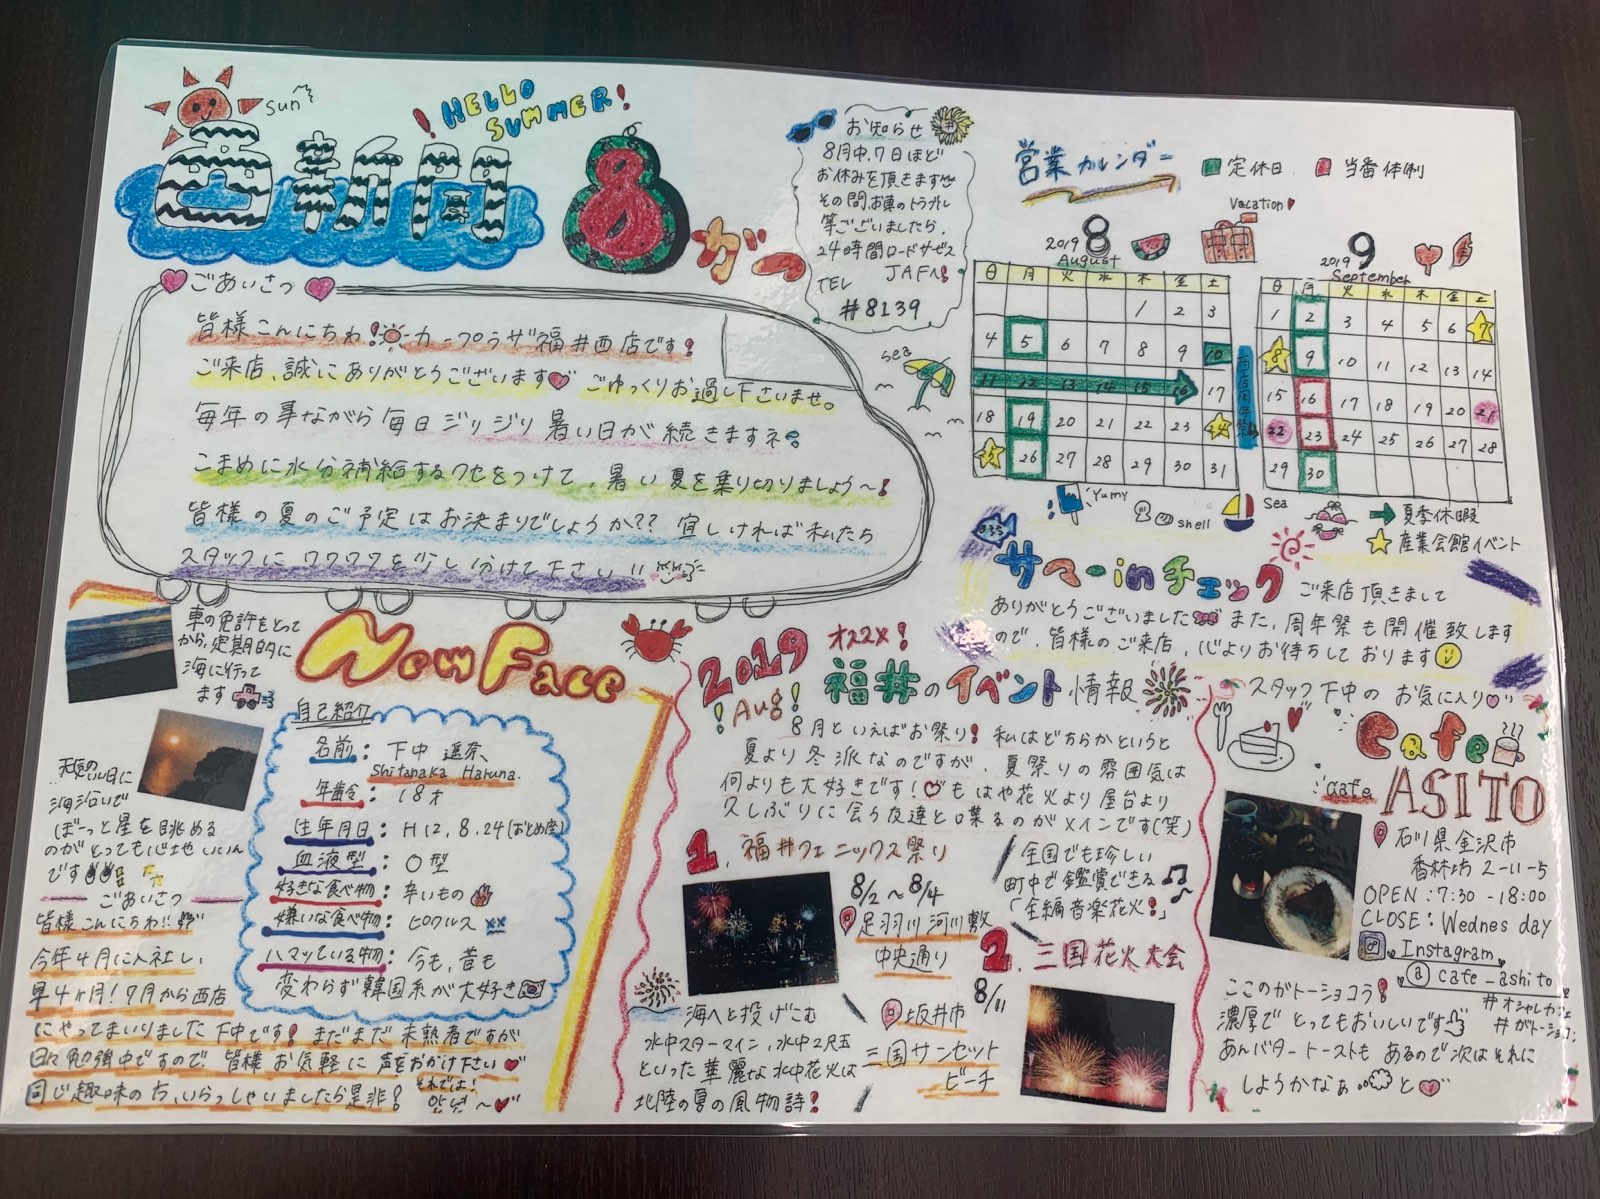 sun
西新聞
! HELLO SUMMER!
8がつ
お知らせ
8月中、7日ほど
お休みを頂きます
その間お車のトラブル
等ございましたら、
24時間ロードサービス
JAFへ!
TEL
#8139
営業カレンダー
定休日
当番体制
Vacation
2019 8
August
日 月 火 水 木 金 土
1 2 3
4 5 6 7 8 9 10
11 12 13 14 15 16 17
18 19 20 21 22 23 24
25 26 27 28 29 30 31
西店周年祭
2019 9
September
日 月 火 水 木 金 土
1 2 3 4 5 6 7
8 9 10 11 12 13 14
15 16 17 18 19 20 21
22 23 24 25 26 27 28
29 30
Yumy
shell
Sea
夏季休暇
産業会館イベント
ごあいさつ
皆様こんにちわ!カープラザ福井西店です!
ご来店、誠にありがとうございます ごゆっくりお過し下さいませ。
毎年の事ながら毎日ジリジリ暑い日が続きますネ
こまめに水分補給するクセをつけて、暑い夏を乗り切りましょう〜!
皆様の夏のご予定はお決まりでしょうか?? 宜しければ私たち
スタッフにワクワクを少し分けて下さい!!
sea
サマーinチェック
ご来店頂きまして
ありがとうございました また、周年祭も開催致します
ので、皆様のご来店、心よりお待ちしております
New Face
車の免許もとって
から、定期的に
海に行って
ます
天気のいい日に
海沿いで
ぼーっと星を眺める
のがとっても心地いいん
です
自己紹介
名前: 下中 遥奈
Shitanaka Haruna.
年齢: 18才
生年月日: H12.8.24(おとめ座)
血液型: O型
好きな食べ物: 辛いもの
嫌いな食べ物: ピクルス
ハマッている物: 今も、昔も
変わらず韓国系が大好き
ごあいさつ
皆様こんにちわ!!
今年4月に入社し、
早4ヶ月! 7月から西店
にやってまいりました下中です! まだまだ未熟者ですが
日々勉強中ですので、皆様お気軽に声をおかけ下さい
同じ趣味の方、いらっしゃいましたら是非?
それでは!
2019
Aug!
オススメ!
福井のイベント情報
8月といえばお祭り! 私はどちらかというと
夏より冬派なのですが、夏祭りの雰囲気は
何よりも大好きです! でもはや花火より屋台より
久しぶりに会う友達と喋るのがメインです(笑)
1. 福井フェニックス祭り
8/2〜8/4
足羽川河川敷
中央通り
全国でも珍しい
町中で鑑賞できる
「全編音楽花火!」
2. 三国花火大会
8/11
坂井市
三国サンセット
ビーチ
海へと投げこむ
水中スターマイン、水中2尺玉
といった華麗な水中花火は
北陸の夏の風物詩!
スタッフ下中のお気に入り
Cafe
cafe ASITO
石川県金沢市
香林坊2-11-5
OPEN:7:30-18:00
CLOSE:Wednesday
Instagram
@ cafe_ashito
#オシャレカフェ
#ガトーショコラ
ここのガトーショコラ!
濃厚でとってもおいしいです
あんバタートーストもあるので次はそれに
しようかなぁ と